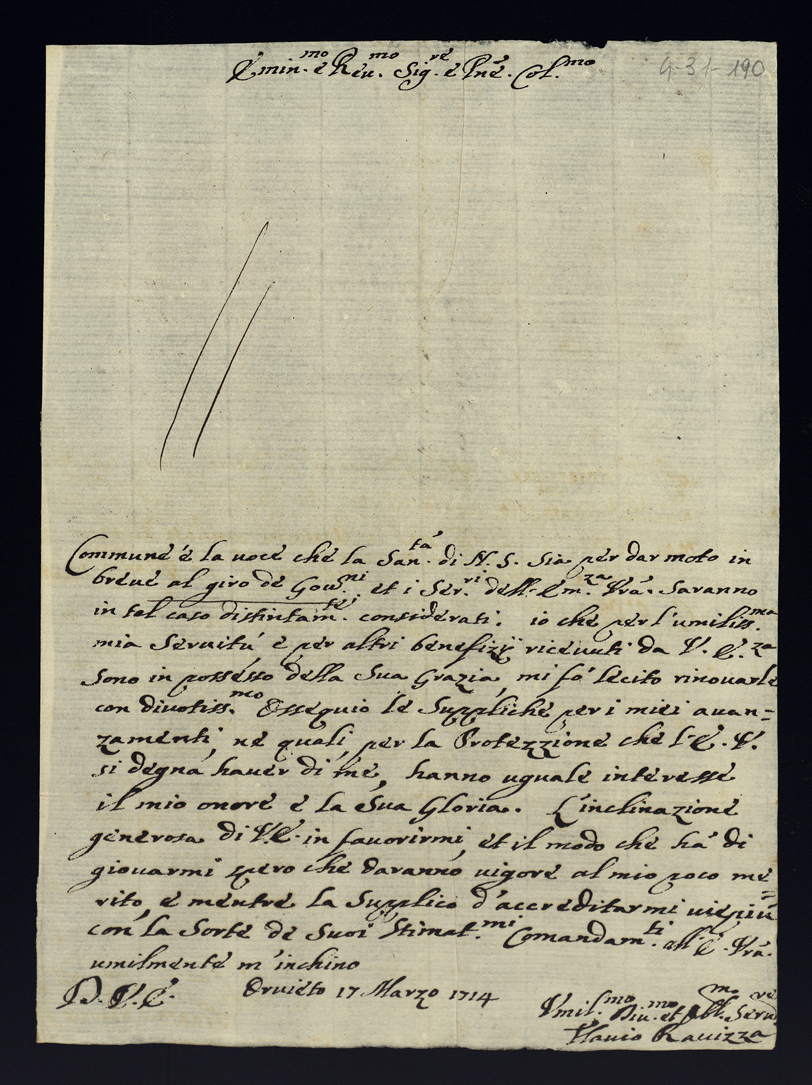 Emin.mo e Reu.mo Sig.re e Pne. Col.mo
9-31-190
Commune é la uoce che la San.tá di N. S. Sia per dar moto in
breue al giro de Gou.ni et i Ser.ri dell'Em.za Vra. Saranno
in tal caso distintam.te considerati. io che per l'umiliss.ma
mia Seruitú e per altri benefizÿ riceuuti da V. E.za
sono in possesso della Sua Grazia, mi fó lecito rinouarle
con diuotiss.mo Ossequio le Suppliche per i miei auan=
zamenti, ne quali, per la Protezzione che l'E. V.
si degna hauer di me, hanno uguale interesse
il mio onore e la Sua Gloria. L'inclinazione
generosa di V.E. in fauorirmi, et il modo che há di
giouarmi spero che daranno uigore al mio poco me=
rito, e mentre la Supplico d'accreditarmi uie piú
con la Sorte de Suoi Stimat.mi Comandam.ti all'E. Vra.
umilmente m'inchino
D. V. E. Oruieto 17 Marzo 1714
Vmil.mo Diu.mo et Obl.mo Seru.re
Flauio Rauizza